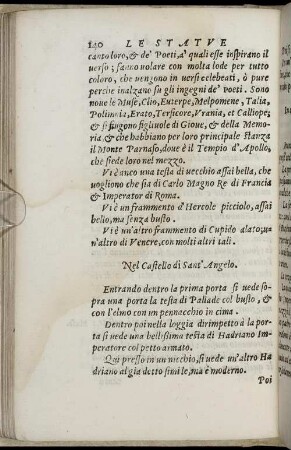 140 LE STATVE
canto loro, & de' Poeti, a' quali esse inspirano il
uerso; fanno uolare con molta lode per tutto
coloro, che uengono in uersi celebrati, ò pure
perche inalzano su gli ingegni de' poeti. Sono
noue le Muse, Clio, Euterpe, Melpomene, Talia,
Polinnia, Erato, Tersicore, Vrania, et Calliope;
& si fingono figliuole di Gioue, & della Memo
ria, & che habbiano per loro principale stanza
il Monte Parnaso, doue è il Tempio d'Apollo,
che siede loro nel mezzo.
Vi è anco una testa di uecchio assai bella, che
uogliono che sia di Carlo Magno Re di Francia
& Imperator di Roma.
Vi è un frammento d'Hercole picciolo, assai
bello, ma senza busto.
Vi è un'altro frammento di Cupido alato; u-
n'altro di Venere, con molti altri tali.
Nel Castello di Sant' Angelo.
Entrando dentro la prima porta si uede so-
pra una porta la testa di Pallade col busto, &
con l'elmo con un pennacchio in cima.
Dentro poi nella loggia dirimpetto à la por
ta si uede una bellissima testa di Hadriano Im
peratore col petto armato.
Qui presso in un nicchio, si uede un'altro Ha
driano al gia detto simile, ma è moderno.
Poi